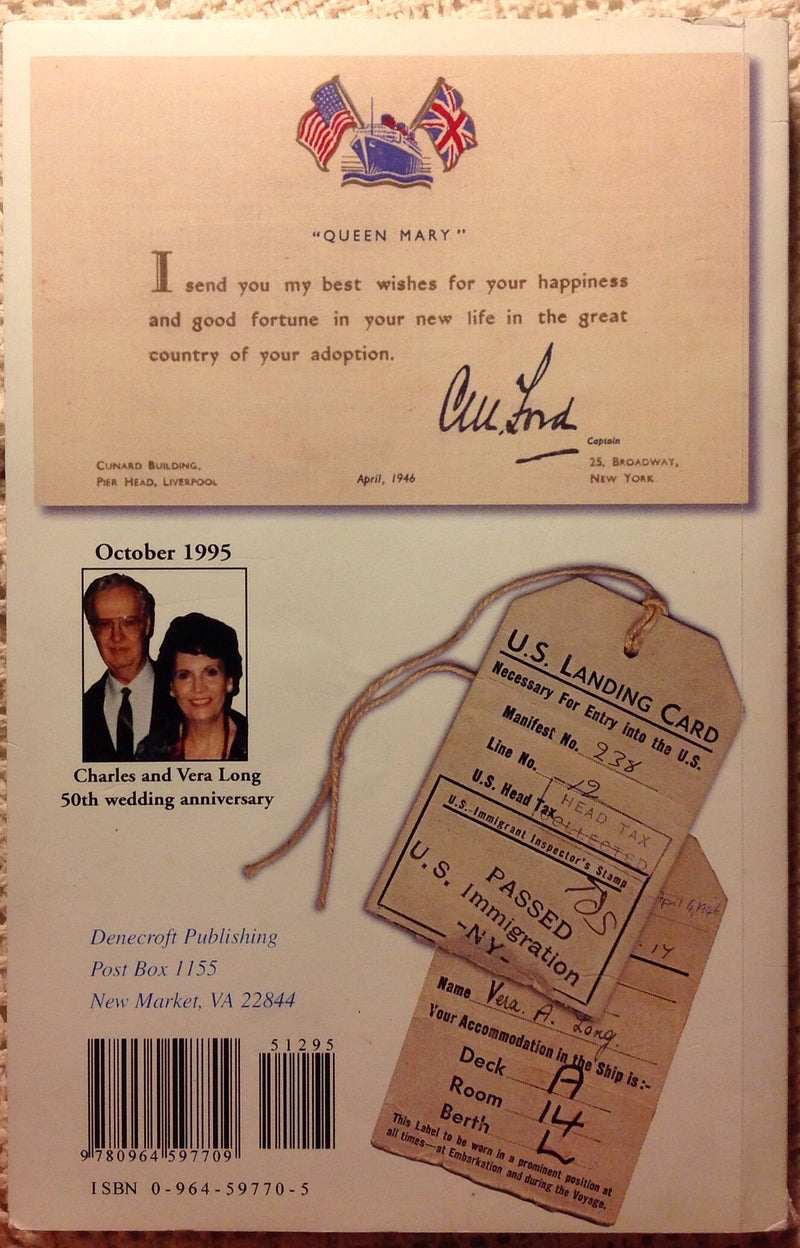 "QUEEN MARY"
I send you my best wishes for your happiness
and good fortune in your new life in the great
country of your adoption.
Ford
Captain
CUNARD BUILDING,
PIER HEAD, LIVERPOOL
April, 1946
25, BROADWAY,
NEW YORK
October 1995
Charles and Vera Long
50th wedding anniversary
U.S. LANDING CARD
Necessary For Entry into the U.S.
Manifest No. 238
Line No. 12
U.S. Head Tax
HEAD TAX
COLLECTED
U.S. Immigrant Inspector's Stamp
PASSED
U.S. Immigration
-NY-
14
Name Vera. A. Long.
Your Accommodation in the Ship is:-
Deck A
Room 14
Berth L
This Label to be worn in a prominent position at
all times—at Embarkation and during the Voyage.
Denecroft Publishing
Post Box 1155
New Market, VA 22844
51295
9 780964 597709
ISBN 0-964-59770-5